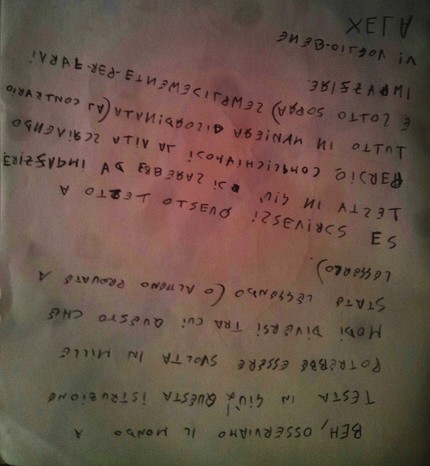 BEH, OSSERVIAMO IL MONDO A
TESTA IN GIÙ. QUESTA ISTRUZIONE
POTREBBE ESSERE SVOLTA IN MILLE
MODI DIVERSI TRA CUI QUESTO CHE
STATE LEGGENDO (O ALMENO PROVATE A
LEGGERLO).
ES SCRIVESSI QUESTO TESTO A
TESTA IN GIÙ CI SAREBBE DA IMPAZZIRE
PERCIÒ COMPLICHIAMOCI LA VITA SCRIVENDO
TUTTO IN MANIERA DISORDINATA (LA CONTRARIO
E SOTTO SOPRA) SEMPLICEMENTE-PER-FARVI
IMPAZZIRE.
VI VOGLIO-BENE
XELA